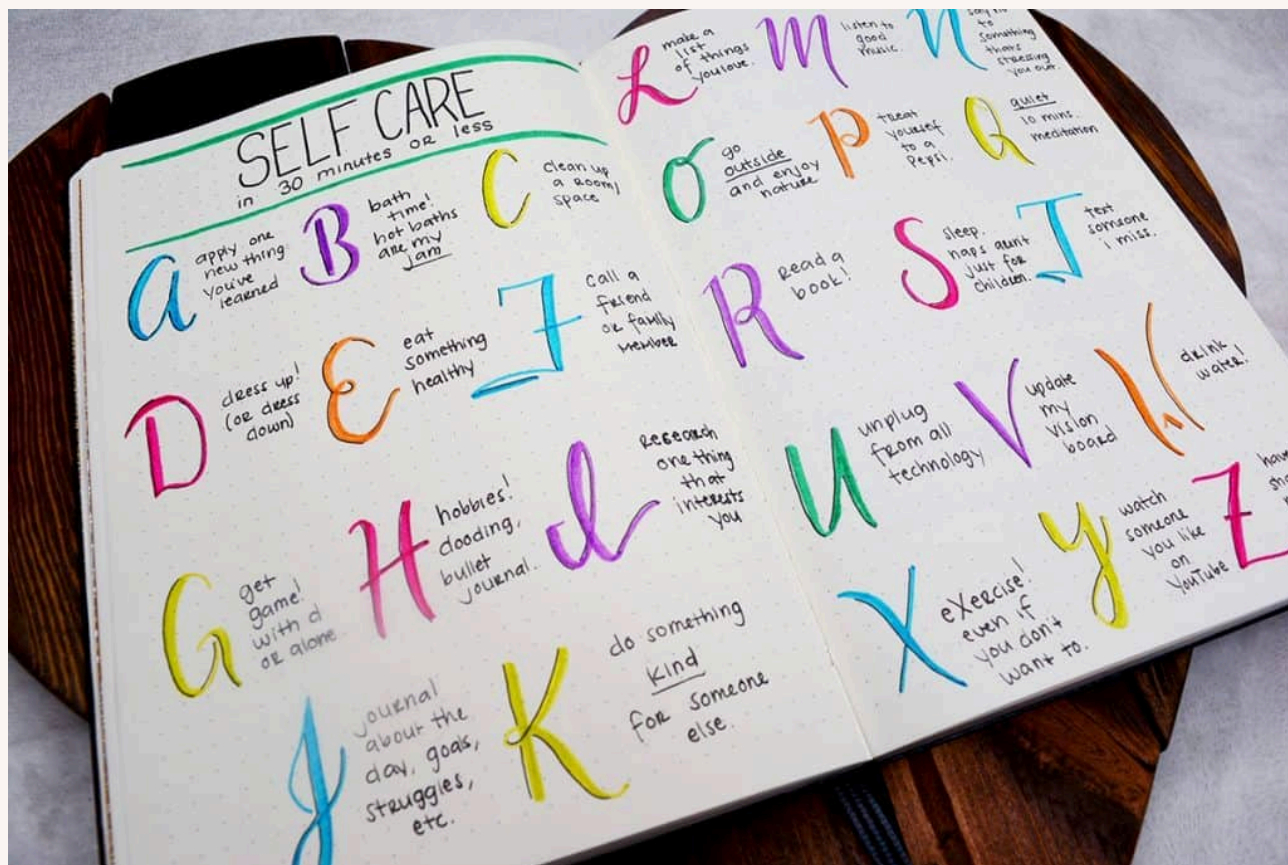 SELF CARE
in 30 minutes OR less
A
apply one
new thing
you've
learned
B
bath
time!
hot baths
are my
jam
C
clean up
a room/
space
D
dress up!
(or dress
down)
E
eat
something
healthy
F
call a
friend
or family
member
G
get
game!
with d
or alone
H
hobbies!
dooding,
bullet
journal.
I
research
one thing
that
interests
you
J
journal
about the
day, goals,
struggles,
etc.
K
do something
kind
for someone
else.
L
make a
list
of things
you love.
M
listen to
good
music.
N
say no
to
something
thats
stressing
you out.
O
go
outside
and enjoy
nature
P
treat
yourself
to a
Pepsi.
Q
quiet
10 mins.
meditation
R
read a
book!
S
sleep.
naps aunt
just for
children.
T
text
someone
i miss.
U
unplug
from all
technology
V
update
my
vision
board
W
drink
water!
X
eXercise!
even if
you don't
want to.
Y
watch
someone
you like
on
YouTube
Z